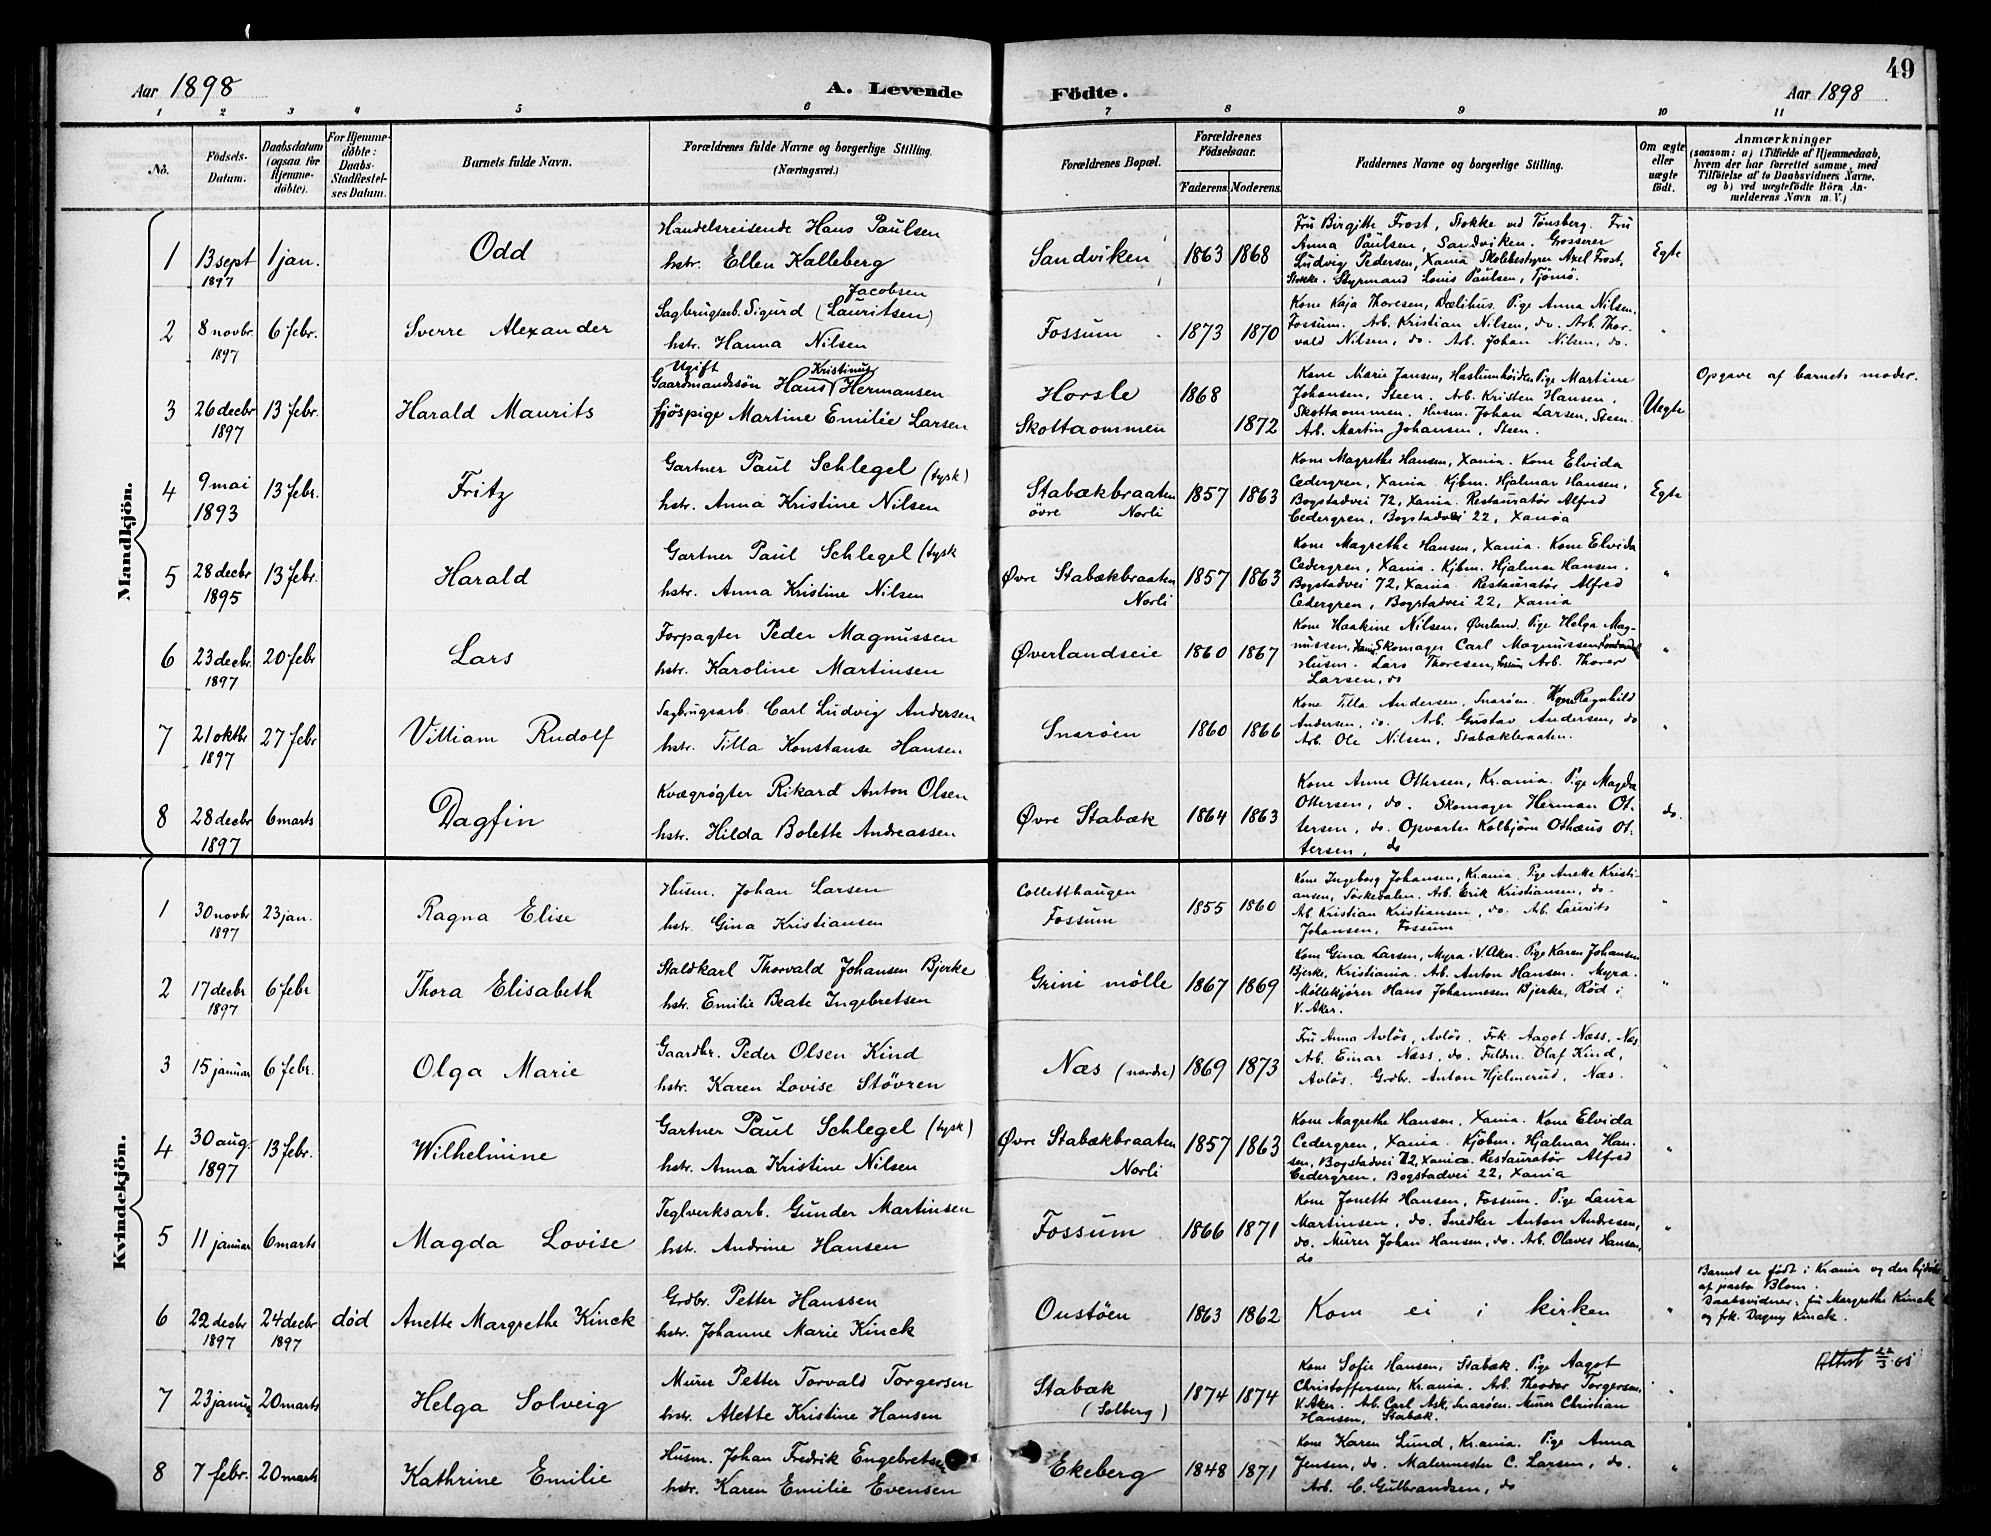 49
Aar 1898
A. Levende Födte.
Aar 1898
1 2 3 4 5 6 7 8 9 10 11
No.
Födsels-Datum.
Daabsdatum (ogsaa for Hjemme-döbte).
For Hjemme-döbte: Daabs-Stadfæstel-ses Datum.
Barnets fulde Navn.
Forældrenes fulde Navne og borgerlige Stilling. (Næringsvei.)
Forældrenes Bopæl.
Forældrenes Födselsaar.
Faderens. Moderens.
Faddernes Navne og borgerlige Stilling.
Om ægte eller uægte födt.
Anmærkninger
(saasom: a) i Tilfælde af Hjemmedaab,
hvem der har forrettet samme, med
Tilföielse af to Daabsvidners Navne,
og b) ved uægtefödte Börn An-
melderens Navn m. V.)
Mandkjön.
1 13 sept 1897 1 jan. Odd
Handelsreisende Hans Paulsen
hstr. Ellen Kalleberg
Sandviken 1863 1868
Fru Birgitte Frost, Stokke ved Tønsberg. Fru
Anna Paulsen, Sandviken. Grosserer
Ludvig Pedersen, Xania Skolebestyrer Axel Frost,
Stokke. Styrmand Louis Paulsen, Tjömö.
Egte
2 8 novbr. 1897 6 febr. Sverre Alexander
Jacobsen
Sagbrugsarb. Sigurd (Lauritsen)
hstr. Hanna Nilsen
Fossum 1873 1870
Kone Kaja Thoresen, Dælihus. Pige Anna Nilsen,
Fossum. Arb. Kristian Nilsen, do. Arb. Thor-
vald Nilsen, do. Arb. Johan Nilsen, do.
"
3 26 decbr 1897 13 febr. Harald Maurits
Ugift Kristinus
Gaardmandssøn Hans Hermansen
fjöspige Martine Emilie Larsen
Horsle 1868
Skottaommen 1872
Kone Marie Jansen, Haslumhöiden Pige Martine
Johansen, Steen. Arb. Kristen Hansen,
Skottaommen. Husm. Johan Larsen, Steen.
Arb. Martin Johansen, Steen.
Uegte
Opgave af barnets moder.
4 9 mai 1893 13 febr. Fritz
Gartner Paul Schlegel (tysk)
hstr. Anna Kristine Nilsen
Stabækbraaten 1857 1863
övre Norli
Kone Magrethe Hansen, Xania. Kone Elvida
Cedergren, Xania. Kjbm. Hjalmar Hansen,
Bogstadvei 72, Xania. Restauratør Alfred
Cedergren, Bogstadvei 22, Xania
Egte
5 28 decbr 1895 13 febr. Harald
Gartner Paul Schlegel (tysk
hstr. Anna Kristine Nilsen
Øvre Stabækbraaten 1857 1863
Norli
Kone Magrethe Hansen, Xania. Kone Elvida
Cedergren, Xania. Kjbm. Hjalmar Hansen.
Bogstadvei 72, Xania. Restauratør Alfred
Cedergren, Bogstadvei 22, Xania
"
6 23 decbr. 1897 20 febr Lars
Forpagter Peder Magnussen
hstr. Karoline Martinsen
Øverlandseie 1860 1867
Kone Haakine Nilsen, Øverland. Pige Helga Mag-
nussen, Xania Skomager Carl Magnussen
Husm. Lars Thoresen, Fossum Arb. Thorer
Larsen, do
"
7 21 oktbr 1897 27 febr Villiam Rudolf
Sagbrugsarb. Carl Ludvig Andersen
hstr. Tilla Konstanse Hansen
Snaröen 1860 1866
Kone Tilla Andersen, Snaröen. Kone Ragnhild
Andersen, do. Arb. Gustav Andersen, do
Arb. Ole Nilsen, Stabækbraaten.
"
8 28 decbr 1897 6 marts Dagfin
Kvægrøgter Rikard Anton Olsen
hstr. Hilda Bolette Andreassen
Øvre Stabæk 1864 1863
Kone Anne Ottersen, Kr.ania. Pige Magda
Ottersen, do. Skomager Herman Ot-
tersen, do. Opvarter Kolbjörn Othæus Ot-
tersen, do
do.
Kvindekjön.
1 30 novbr 1897 23 jan. Ragna Elise
Husm. Johan Larsen
hstr. Gina Kristiansen
Colletthaugen
Fossum 1855 1860
Kone Ingeborg Johansen, Kr.ania. Pige Aneke Kristi-
ansen, Sörkedalen. Arb. Erik Kristiansen, do.
Arb Kristian Kristiansen, do. Arb. Laurits
Johansen, Fossum
"
2 17 decbr 1897 6 febr Thora Elisabeth
Staldkarl Thorvald Johansen Bjerke
hstr. Emilie Beate Ingebretsen
Grini mölle 1867 1869
Kone Gina Larsen, Myra i V. Aker. Pige Karen Johansen
Bjerke, Kristiania. Arb. Anton Hansen. Myra.
Möllekjörer Hans Johannesen Bjerke, Röd i
V. Aker.
"
3 15 januar 6 febr. Olga Marie
Gaardbr. Peder Olsen Kind
hstr. Karen Lovise Stövren
Næs (nordre) 1869 1873
Fru Anna Avlös, Avlös. Frk. Aagot Næss, Næs
Arb. Einar Næss, do. Fuldm. Olaf Kind,
Avlös. Grdbr. Anton Hjelmerud, Næs.
"
4 30 aug. 1897 13 febr. Wilhelmine
Gartner Paul Schlegel (tysk)
hstr. Anna Kristine Nilsen
Øvre Stabækbraaten 1857 1863
Norli
Kone Magrethe Hansen, Xania. Kone Elvida
Cedergren, Xania. Kjöbm. Hjalmar Han-
sen, Bogstadvei 72, Xania. Restauratör Alfred
Cedergren, Bogstadvei 22, Xania
"
5 11 januar 6 marts Magda Lovise
Teglverksarb. Gunder Martinsen
hst. Andrine Hansen
Fossum 1866 1871
Kone Jonette Hansen, Fossum. Pige Laura
Martinsen, do. Snedker Anton Andresen,
do. Murer Johan Hansen, do. Arb. Olaves Hansen,
do
"
6 22 decbr 1897 24 decbr 1897 död Anette Margrethe Kinck
Grdbr. Petter Hanssen
hstr. Johanne Marie Kinck
Oustöen 1863 1862
Kom ei i kirken
"
Barnet er födt i Kr.ania og der hjdöbt
af pastor Blom.
Daabsvidner: fru Margrethe Kinck
og frk. Dagny Kinck.
7 23 januar 20 marts Helga Solveig
Murer Petter Torvald Torgersen
hstr. Alette Kristine Hansen
Stabæk 1874 1874
(Solberg)
Kone Sofie Hansen, Stabæk. Pige Aagot
Christoffersen, Kr.ania. Arb. Theodor Torgersen,
V. Aker. Arb. Carl Ask, Snaröen. Murer Christian
Hansen, Stabæk.
"
Attest 22/3 65
8 7 febr. 20 marts Kathrine Emilie
Husm. Johan Fredrik Engebretsen
hstr. Karen Emilie Evensen
Ekeberg 1848 1871
Kone Karen Lund, Kr.ania. Pige Anna
Jensen, do. Malermester C. Larsen, do.
Arb. C. Gulbrandsen, do
"